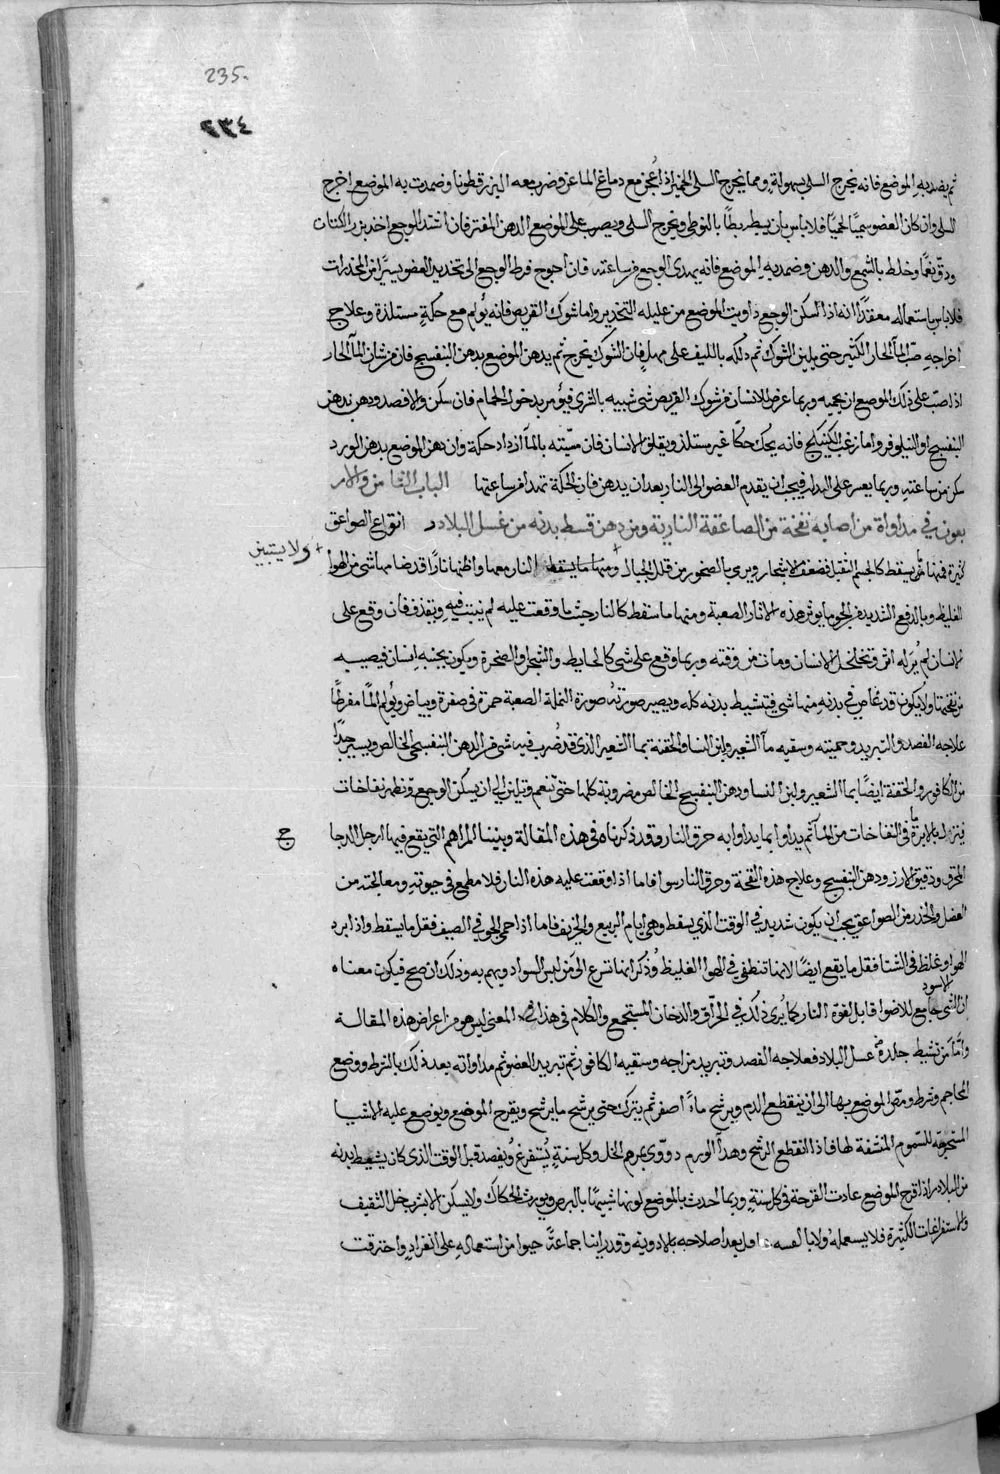 235.
٢٣٤
ثم يضمد به الموضع فانه يخرج السلى بسهولة ومما يخرج السلى الخمير اذا عُجن مع دماغ الماعز وضرب معه البزرقطونا وضمدت به الموضع اخرج
السلى وان كان العضو سمينًا لحميًا فلا باس بان يبط بطًا بالنوطى ويخرج السلى ويصب على الموضع الدهن المفتر فان اشتد الوجع اخذ بزر الكتان
ودق نعمًا وخلط بالشمع والدهن وضمد به الموضع فانه يهدى الوجع من ساعته فان احوج فرط الوجع الى تخدير العضو يسيرًا من المخدرات
فلا باس باستعماله معتقدًا انه اذا سكن الوجع داويت الموضع من غليله التخدير واما شوك القريص فانه يؤلم مع حكة مستلذة وعلاج
اخراجه صب الماء الحار الكثير حتى يلين الشوك ثم دلكه بالليف على مهل فان الشوك يخرج ثم يدهن الموضع بدهن البنفسج فان من شان الماء الحار
اذا صب على ذلك الموضع ان يحميه وربما عرض للانسان من شوك القريص شى شبيه بالشرى فيؤمر بدخول الحمام فان سكن والا فصد ودهن بدهن
البنفسج او النيلوفر واما زغب الكبيكج فانه يحك حكًا غير مستلذ ويقلق الانسان فان مسّيته بالماء ازداد حكة وان دهن الموضع بدهن الورد
سكن من ساعته وربما يعسر على البدن فيجب ان يقدم العضو الى النار بعد ان يدهن فان الحكة تهدا من ساعتها الباب الثامن والار
بعون في مداواة من اصابه نفخة من الصاعقة النارية ومن دهن قسط بدنه من عسل البلادر انواع الصواعق
كثيرة فمنها ما يسقط كالجسم الثقيل فيضعف الاشجار ويرى بالصخور من قلل الجبال ومنها ما يسقط النار معها واظنها نارًا قد ضامها شى من الهوا
+ ولا يتبين
الغليظ وبالدفع الشديد في الجو ما يوثر هذه الاثار الصعبة ومنها ما سقط كالنار حيث ما وقعت عليه لم يثبت فيه وينفذ فان وقع على
الانسان لم يُرَ له اثر وتخلخل الانسان ومات من وقته وربما وقع على شى كالحايط والشجر او الصخرة ويكون بجنبه انسان فيصيبه
من نفختها ولا يكون قد غاص في بدنه منها شى فيتشيط بدنه كله ويصير صورته صورة النملة الصعبة حمرة في صفرة وبياض ويؤلم المًا مفرطًا
علاجه الفصد والتبريد وحميته وسقيه ماء الشعير ولبن النساء والحقنة بماء الشعير الذى قد ضرب فيه شى من الدهن البنفسجى الخالص ويسير جدًا
من الكافور والحقنة ايضًا بماء الشعير ولبن النساء ودهن البنفسج الخالص مضروبة كلها حتى تنعم وتلين الى ان يسكن الوجع وتظهر نفاخات
فينزل بالابرة ما في النفاخات من الماء ثم يداوا بما يداوا به حرق النار وقد ذكرناه في هذه المقالة وبينا المراهم التي يقع فيها الرجل الدجا
ج
المحرق ودقيق الارز ودهن البنفسج وعلاج هذه النفخة وحرق النار سوا فاما اذا وقعت عليه هذه النار فلا مطمع في حيوته ومعالجته من
الفضل والحذر من الصواعق يجب ان يكون شديد في الوقت الذي يسقط وهى ايام الربيع والخريف فاما اذا حمى الجو في الصيف فقل ما يسقط واذا برد
الهوا وغلظ في الشتا فقل ما يقع ايضًا لانها تنطفى في الهوا الغليظ وذكر انها تسرع الى من لبس السواد ويهم به وذلك ان صح فيكون معناه
ان الشى الاسود جامع للاضوا قابل لقوة النار كما يُرى ذلك في الحراق والدخان المستجمع والكلام في هذا المعنى ليس هو من اغراض هذه المقالة
واما من تشيط جلده من عسل البلادر فعلاجه الفصد وتبريد مزاجه وسقيه الكافور ثم تبريد العضو ثم مداواته بعد ذلك بالشرط ووضع
المحاجم وشرط ومص الموضع بها الى ان ينقطع الدم ويرشح ماءً اصفر ثم يترك حتى يرشح ما يرشح ويقرح الموضع ويوضع عليه الاشيا
المستخرجة للسموم المنشفة لها فاذا انقطع الرشح وهدا الورم دووى بمرهم الخل وكل سنة يُستفرغ ويفصد قبل الوقت الذى كان يشيط بدنه
من البلادر اذا قرح الموضع عادت القرحة في كل سنة وربما احدث بالموضع لونها شبيهًا بالبرص ويورث الحكاك ولا يسكن الا بشرب خل الثقيف
والاستفراغات الكثيرة فلا يسعمله ولا بالمسه عاقل بعد اصلاحه بالادوية وقد راينا جماعة حيوا من استعماله على انفراد واحترقت